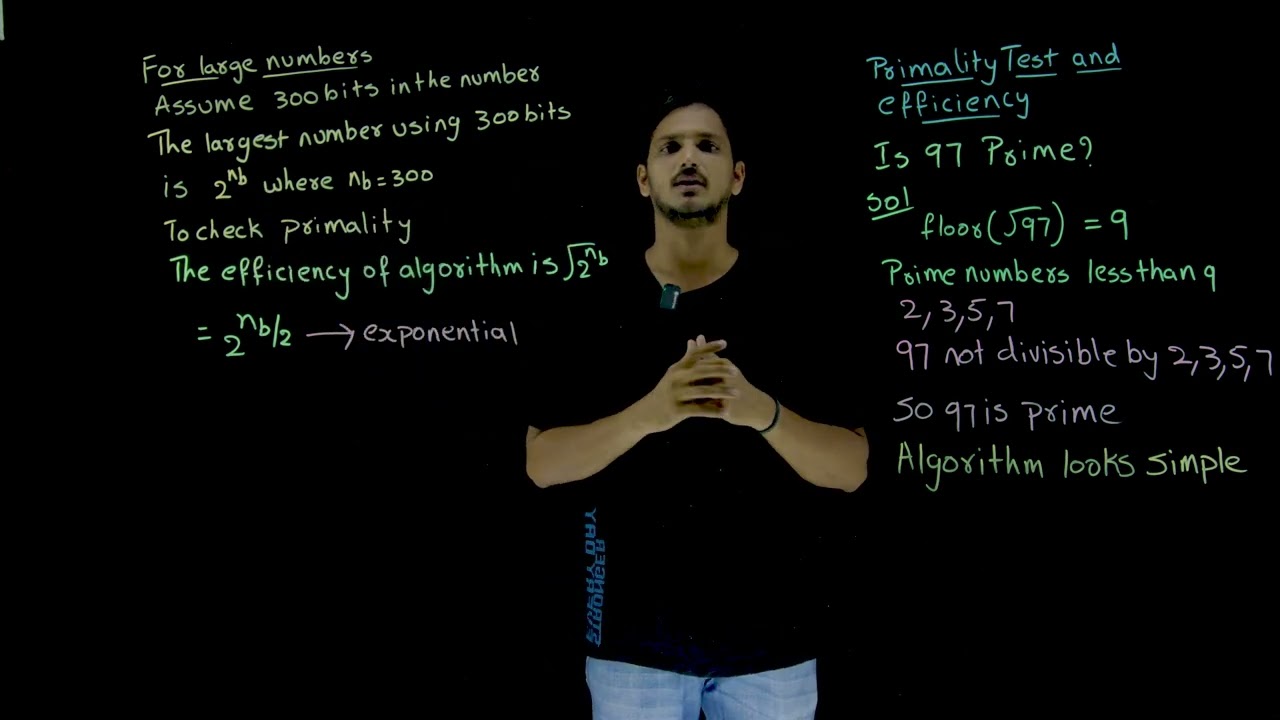 For large numbers
Assume 300 bits in the number
The largest number using 300 bits
is 2^nb where nb=300
To check primality
The efficiency of algorithm is √2^nb
= 2^nb/2 → exponential
Primality Test and
efficiency
Is 97 Prime?
Sol
floor(√97) = 9
Prime numbers less than 9
2,3,5,7
97 not divisible by 2,3,5,7
So 97 is prime
Algorithm looks simple